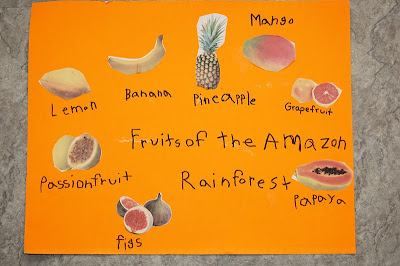 Mango
Lemon
Banana
Pineapple
Grapefruit
Fruits of the Amazon
Rainforest
Passionfruit
Papaya
figs